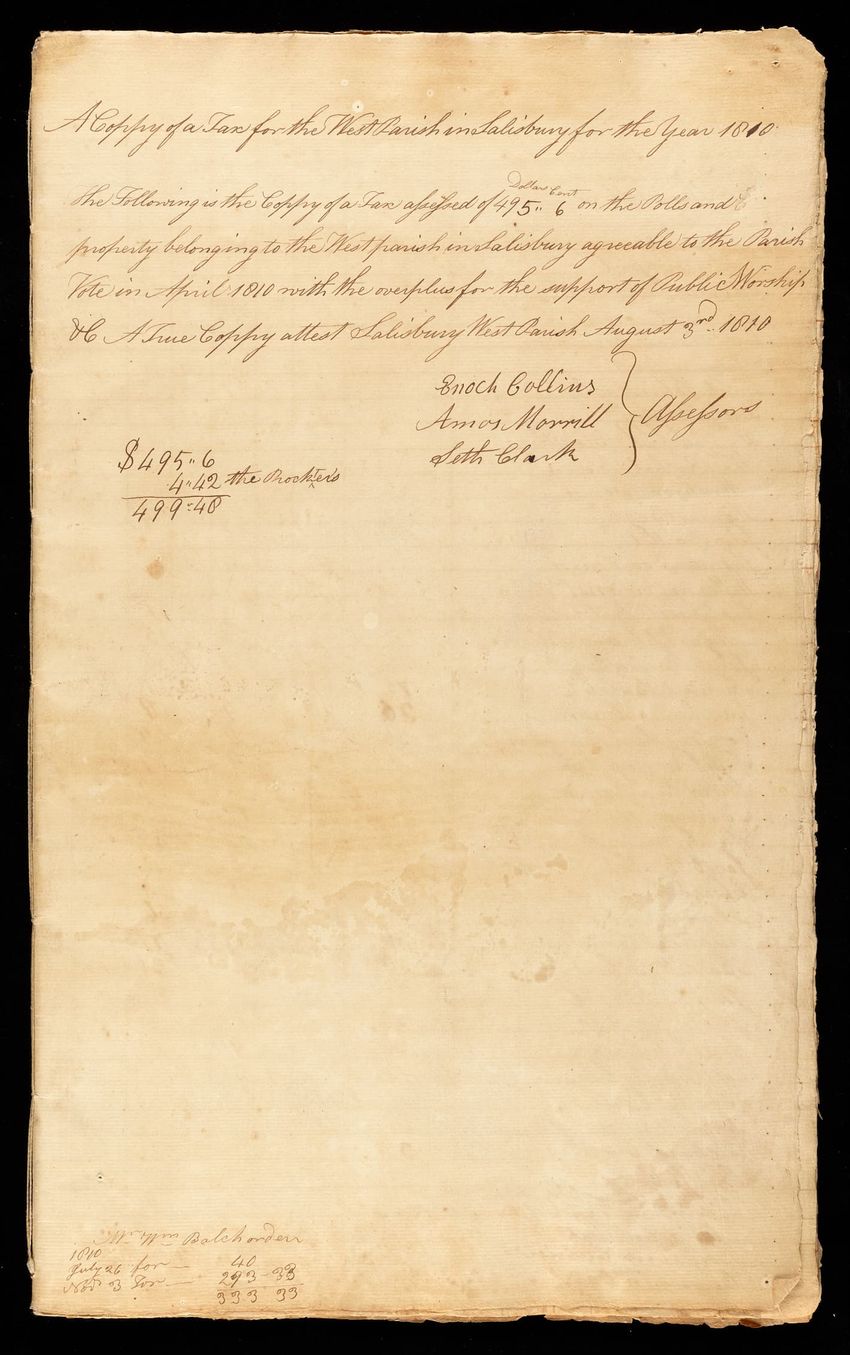 A Coppy of a Tax for the West Parish in Salisbury for the Year 1810
Dollar Cent
the Following is the Coppy of a Tax assessed of 495" 6 on the Polls and
property belonging to the West parish in Salisbury agreeable to the Parish
Vote in April 1810 with the overplus for the support of Public Worship
&C A True Coppy attest Salisbury West Parish August 3rd 1810
Enoch Collins
Amos Morrill
Seth Clark
Assessors
$495" 6
4"42 the
499"48
Mr Wm Balch orders
1810
July 26 for — 40
Novr 3 For — 293 - 33
333 33